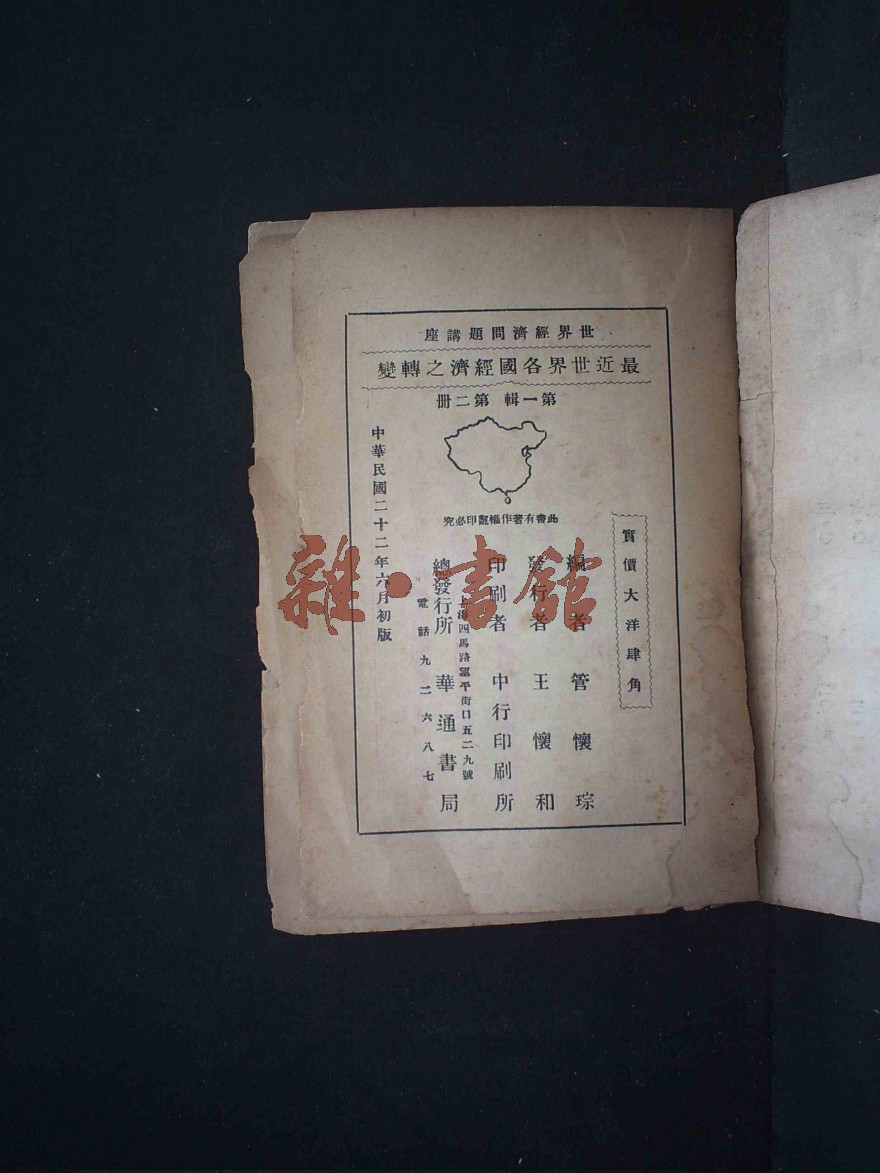 世界經濟問題講座
最近世界各國經濟之轉變
第一輯 第二冊
此書有著作權翻印必究
實價大洋肆角
編者 管懷琮
發行者 王懷和
印刷者 中行印刷所
上海四馬路望平街口五二九號
總發行所 華通書局
電話九二六八七
中華民國二十二年六月初版
雜·書館